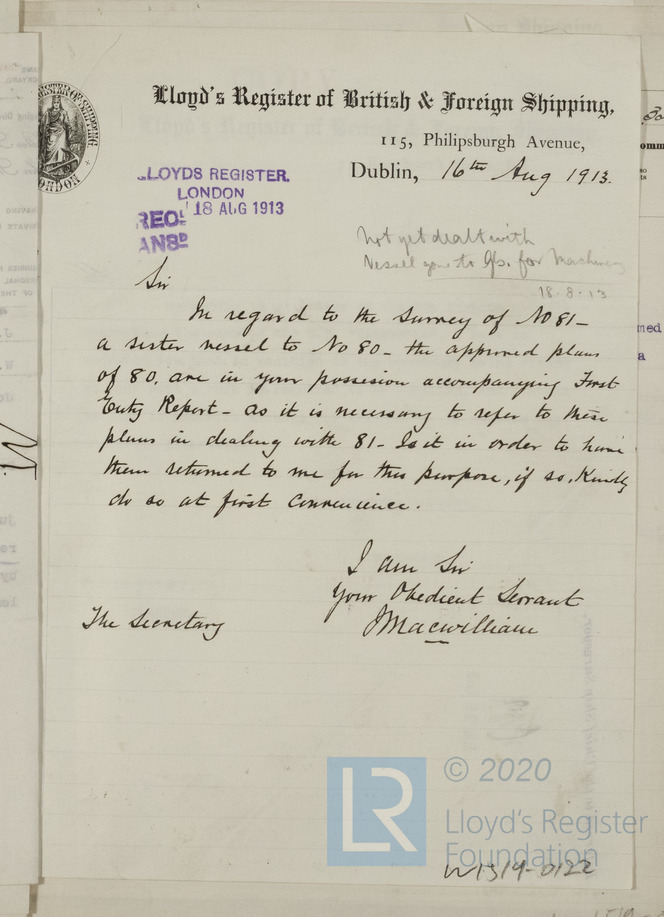 Lloyd's Register of British & Foreign Shipping,
115, Philipsburgh Avenue,
Dublin, 16th Aug 1913.
LLOYDS REGISTER.
LONDON
REC'D 18 AUG 1913
ANSD
Not yet dealt with
Vessel gone to Gls. for Machinery
18.8.13
Sir
In regard to the survey of No 81 -
a sister vessel to No 80 - the approved plans
of 80, are in your possesion accompanying First
Entry Report - as it is necessary to refer to these
plans in dealing with 81 - Is it in order to have
them returned to me for this purpose, if so, Kindly
do so at first convenience.
I am Sir
Your Obedient Servant
JMacwilliam
The Secretary
LR
© 2020
Lloyd's Register
Foundation
W1319-0122